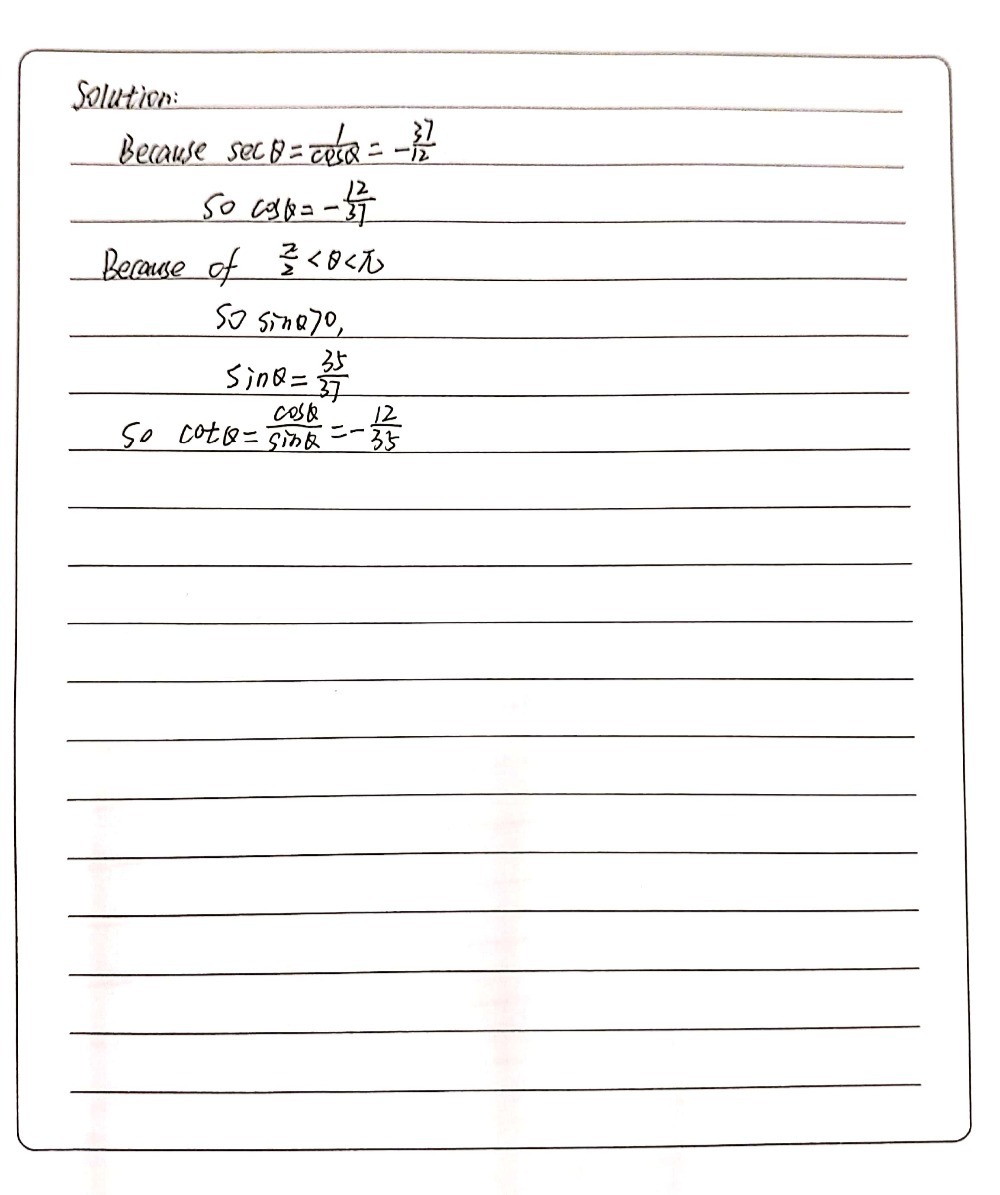 Solution:
Because secθ = 1/cosθ = -37/12
So cosθ = -12/37
Because of π/2 < θ < π
So sinθ > 0,
sinθ = 35/37
So cotθ = cosθ/sinθ = -12/35